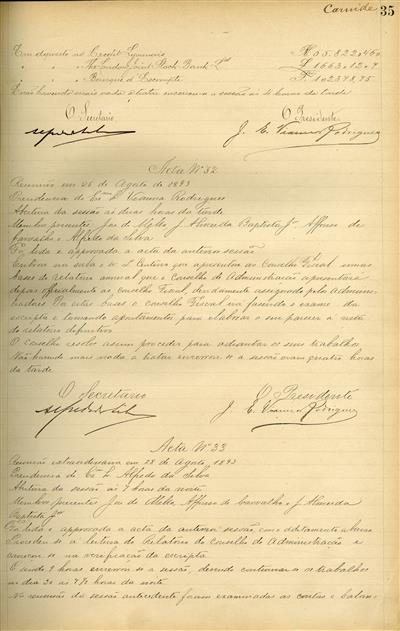 Carnide 35
Em deposito no Credit Lyonnais
" " The London Joint Stock Bank Ld
" " Banque d'Escompte
E não havendo mais nada a tratar encerrou-se a sessão ás 4 horas da tarde
O Secretario O Presidente
J. E. Vianna Rodrigues
Acta Nº 32
Reunião em 26 de Agosto de 1893
Presidencia do Exmo Sr Vianna Rodrigues
Abertura da sessão ás duas horas da tarde
Membros presentes, José de Mello, J. Almeida Baptista Jr, Affonso de
Carvalho e Alfredo da Silva
Foi lida e approvada a acta da anterior sessão
bases do relatorio annual que o Conselho de Administração apresentará
depois officialmente ao Conselho Fiscal, devidamente assignado pelos Adminis-
tradores. Por estas bases o Conselho Fiscal irá fazendo o exame da
escripta e tomando apontamentos para elaborar o seu parecer á vista
do relatorio definitivo
O conselho resolve assim proceder para adiantar os seus trabalhos
Não havendo mais nada a tratar encerrou-se a sessão eram quatro horas
da tarde
O Secretario O Presidente
J. E. Vianna Rodrigues
Acta Nº 33
Reunião extraordinaria em 28 de Agosto 1893
Presidencia do Exmo Sr Alfredo da Silva
Abertura da sessão ás 7 horas da noite
Membros presentes José de Mello, Affonso de Carvalho e J. Almeida
Baptista Jr
Foi lida e approvada a acta da anterior sessão, com o aditamento
Procedeu-se á leitura do Relatorio do Conselho de Administração e
na verificação da escripta
E sendo 9 horas encerrou-se a sessão, devendo continuar os trabalhos
no dia 30 ás 7 1/2 horas da noite
Na reunião da sessão antecedente foram examinadas as contas e balan-